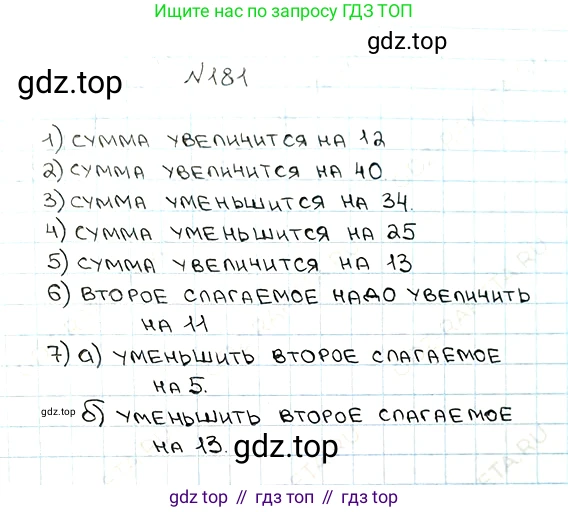 Ищите нас по запросу ГДЗ ТОП
gdz.top
gdz.top
№181
1) СУММА УВЕЛИЧИТСЯ НА 12
2) СУММА УВЕЛИЧИТСЯ НА 40
3) СУММА УМЕНЬШИТСЯ НА 34.
4) СУММА УМЕНЬШИТСЯ НА 25
5) СУММА УВЕЛИЧИТСЯ НА 13
6) ВТОРОЕ СЛАГАЕМОЕ НАДО УВЕЛИЧИТЬ
НА 11
7) а) УМЕНЬШИТЬ ВТОРОЕ СЛАГАЕМОЕ
НА 5.
gdz.top б) УМЕНЬШИТЬ ВТОРОЕ СЛАГАЕМОЕ
НА 13. gdz.top
gdz top // гдз топ // гдз.top